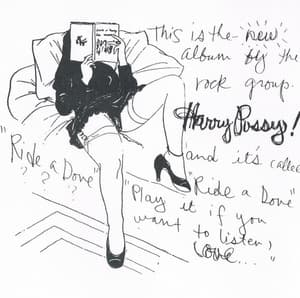 This is the new
album by the
rock group.
Harry Pussy!
and it's called
"Ride a Dove"
"Ride a Dove"
? ? ?
"Play it if you
want to listen,
Love..."